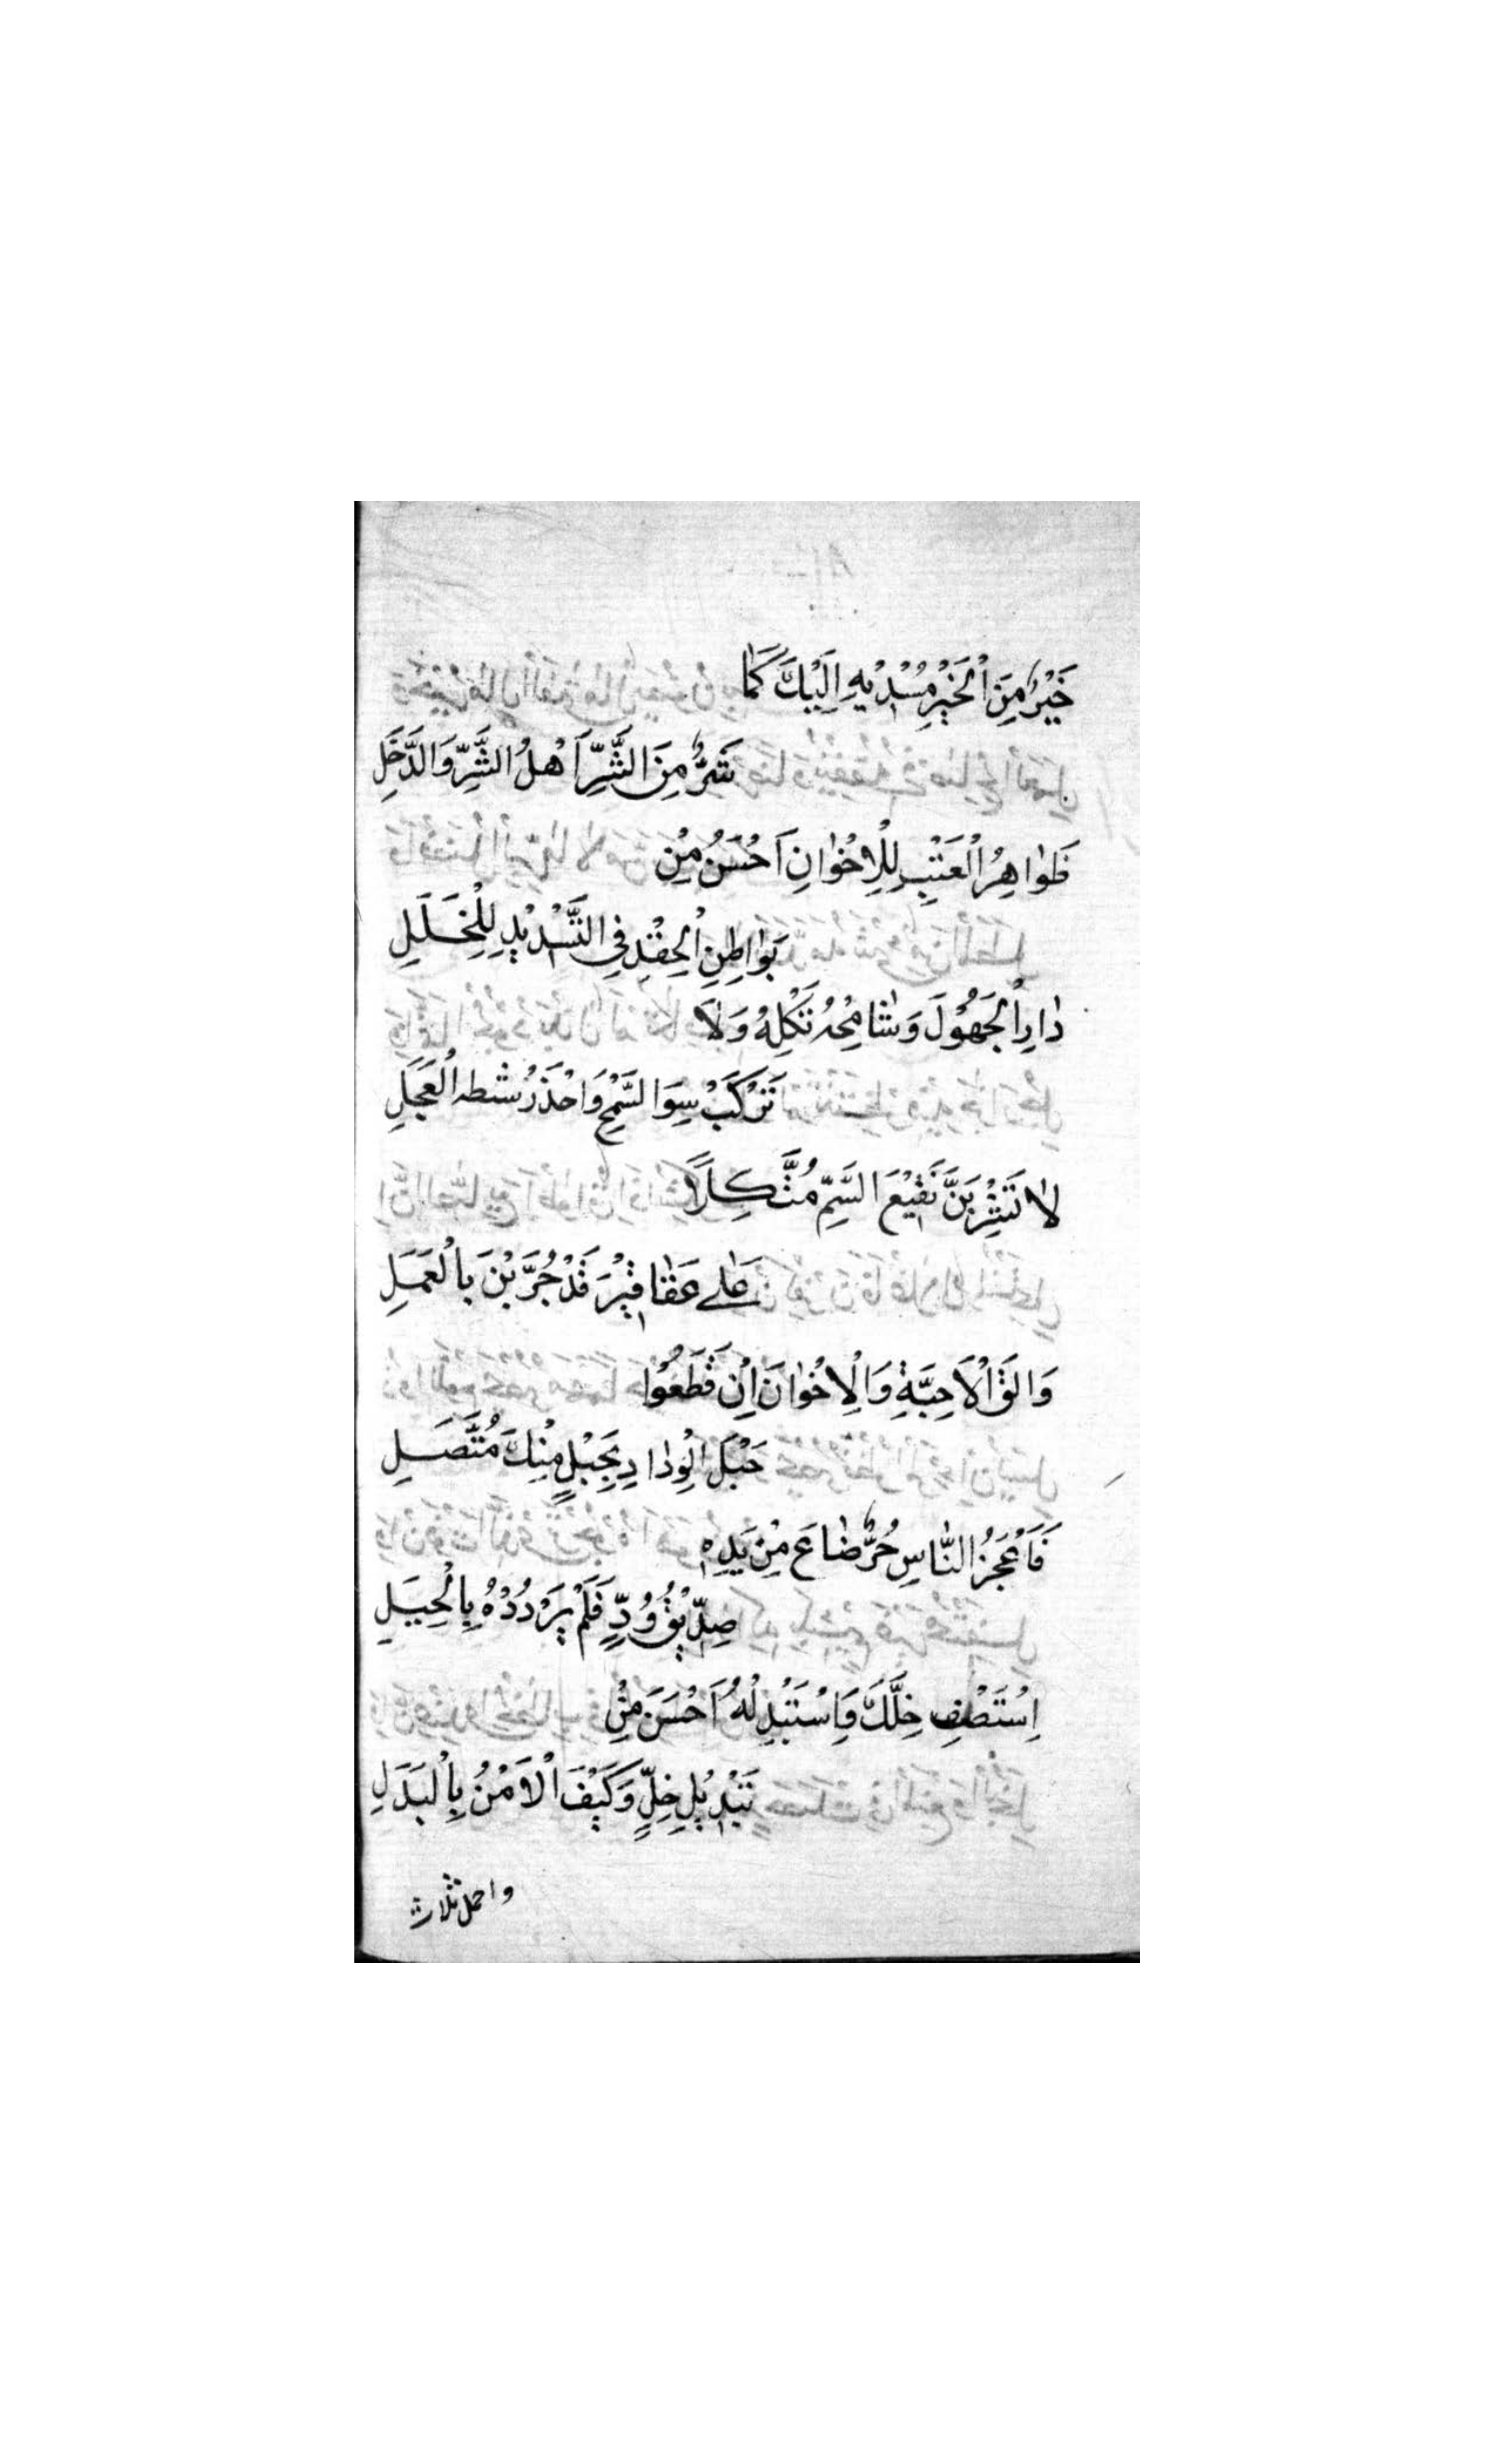 خَيْرٌ مِنَ الْخَيْرِ مُسْدِيْهِ اِلَيْكَ كَمَا
شَرٌّ مِنَ الشَّرِّ اَهْلُ الشَّرِّ وَالدَّخَلِ
ظَوَاهِرُ الْعَتْبِ لِلْاِخْوَانِ اَحْسَنُ مِنْ
بَوَاطِنِ الْحِقْدِ فِي التَّسْدِيْدِ لِلْخَلَلِ
دَارِ الْجَهُوْلَ وَسَامِحْهُ تَكْلِهُ وَلَا
تَرْكَبْ سِوَا السَّمْحِ وَاحْذَرْ سُطه الْعَجَلِ
لَا تَشْرَبَنَّ نَقِيْعَ السَّمِّ مُتَّكِلًا
عَلٰے عَقَاقِيْرَ قَدْ جُرِّبْنَ بِالْعَمَلِ
وَالْقَ الْاَحِبَّةِ وَالْاِخْوَانَ اِنْ قَطَعُوْا
حَبْلَ الْوِدَادِ بِحَبْلٍ مِنْكَ مُتَّصَلِ
فَاَعْجَزُ النَّاسِ حُرٌّ ضَاعَ مِنْ يَدِهٖ
صِدِّيْقُ وُدٍّ فَلَمْ يَرْدُدْهُ بِالْحِيَلِ
اِسْتَصْفِ خِلَّكَ وَاسْتَبْدِلْهُ اَحْسَنَ مِنْ
تَبْدِيْلِ خِلٍّ وَكَيْفَ الْاَمْنُ بِالْبَدَلِ
واحمل ثلاث